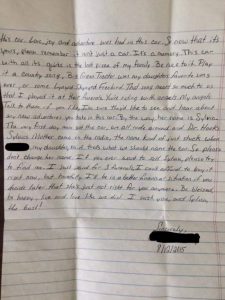 this car. Love, joy and adventure were had in this car. I know that its
yours, please remember it isnt just a car. It's a memory. This car
with all its quirks is the last piece of my family. Be nice to it. Play
it a country song, Big Green Tractor was my daughters favorite song
ever, or some Lynyrd Skynyrd Freebird. That song meant so much to us
that I played it at their funerals. You're riding with angels
Talk to them if you like. I'm sure they'd like to see and hear about
any new adventures you take in this car. By the way, her name is Sylvia.
The very first day we got the car, we all rode around and Dr. Hooks
Sylvias Mother came on the radio. The name kind of just stuck when
my daughter, said thats what we should name the car. So please
dont change her name. If you ever want to sell Sylvia, please try
to find me. I just paid for 3 funerals, I cant afford to buy it
right now, but hopefully I'll be in a better financial situation if you
decide later that she's just not right for you anymore. Be blessed
be happy, live and love like we did. I wish you, and Sylvia
the best!
Sincerely,
8/12/2015